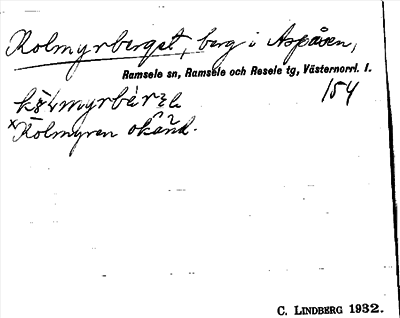 Kolmyrberget, berg i Aspåsen,
Ramsele sn, Ramsele och Resele tg, Västernorrl. l.
154
ˣKolmyren okänd.
C. LINDBERG 1932.